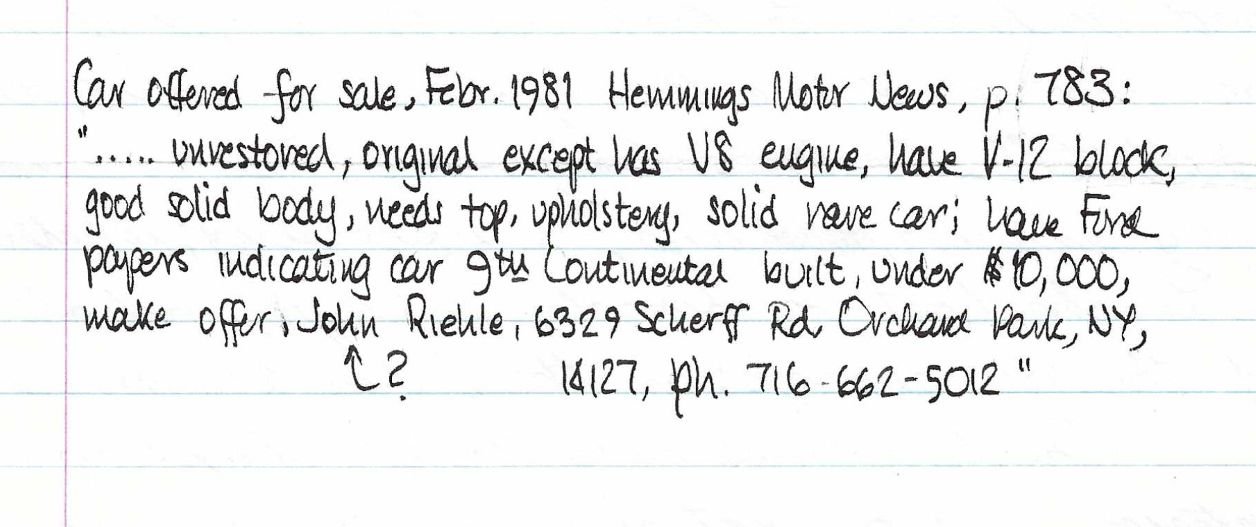 Car offered for sale, Febr. 1981 Hemmings Motor News, p. 783:
"..... unrestored, original except has V8 engine, have V-12 block,
good solid body, needs top, upholstery, solid rare car; have Ford
papers indicating car 9th Continental built, under $10,000,
make offer, John Riehle, 6329 Scherff Rd, Orchard Park, NY,
↑ ? 14127, ph. 716-662-5012"